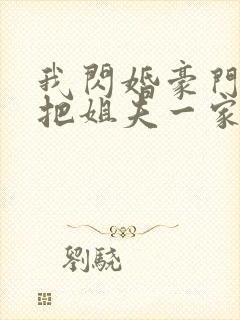 我閃婚豪門
把姐夫一家
劉驍